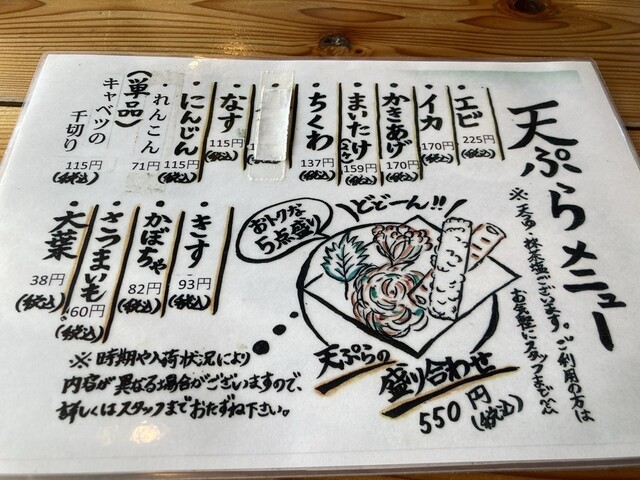 天ぷらメニュー
※天つゆ・抹茶塩ございます。ご利用の方は
お気軽にスタッフまで
エビ
225円
(税込)
イカ
170円
(税込)
かきあげ
170円
(税込)
まいたけ
159円
(税込)
ちくわ
137円
(税込)
なす
115円
(税込)
にんじん
115円
(税込)
れんこん
71円
(税込)
(単品)
キャベツの
千切り
115円
(税込)
きす
93円
(税込)
かぼちゃ
82円
(税込)
さつまいも
60円
(税込)
大葉
38円
(税込)
どどーん!!
おトクな
5点盛り
天ぷらの
盛り合わせ
550円
(税込)
※時期や入荷状況により
内容が異なる場合がございますので、
詳しくはスタッフまでおたずね下さい。